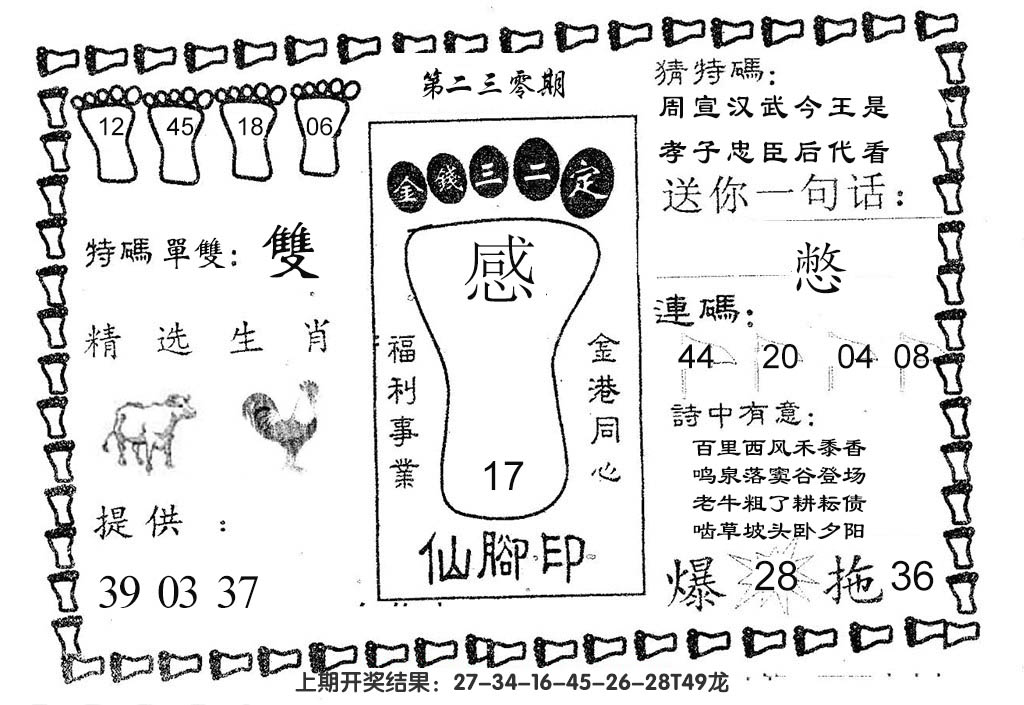 第二三零期
12 45 18 06
特碼單雙：雙
精选生肖
提供：
39 03 37
金錢三二定
感
福利事業
金港同心
17
仙腳印
猜特碼：
周宣汉武今王是
孝子忠臣后代看
送你一句话：
憋
連碼：
44 20 04 08
詩中有意：
百里西风禾黍香
鸣泉落窦谷登场
老牛粗了耕耘债
啮草坡头卧夕阳
爆 28 拖 36
上期开奖结果：27-34-16-45-26-28T49龙